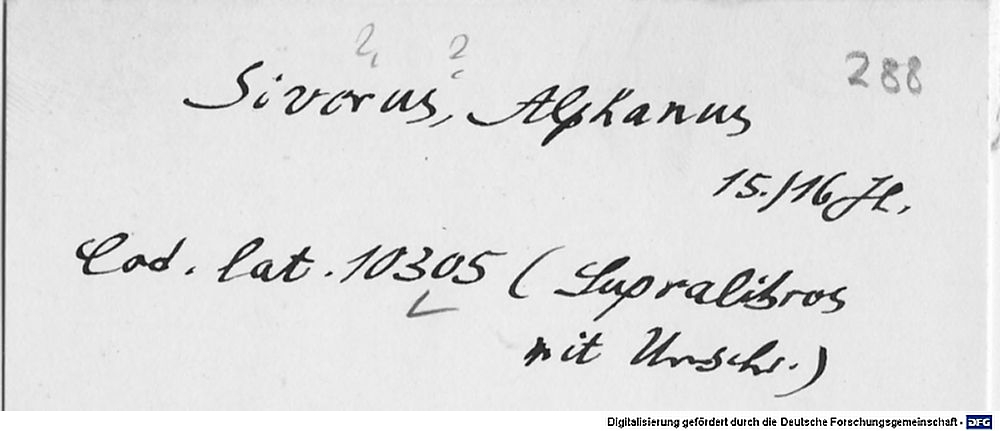 ? ?
288
Sivorus, Alphanus
15./16 Jh.
Cod. lat. 10305 (Supralibros
mit Umschr.)
Digitalisierung gefördert durch die Deutsche Forschungsgemeinschaft - DFG